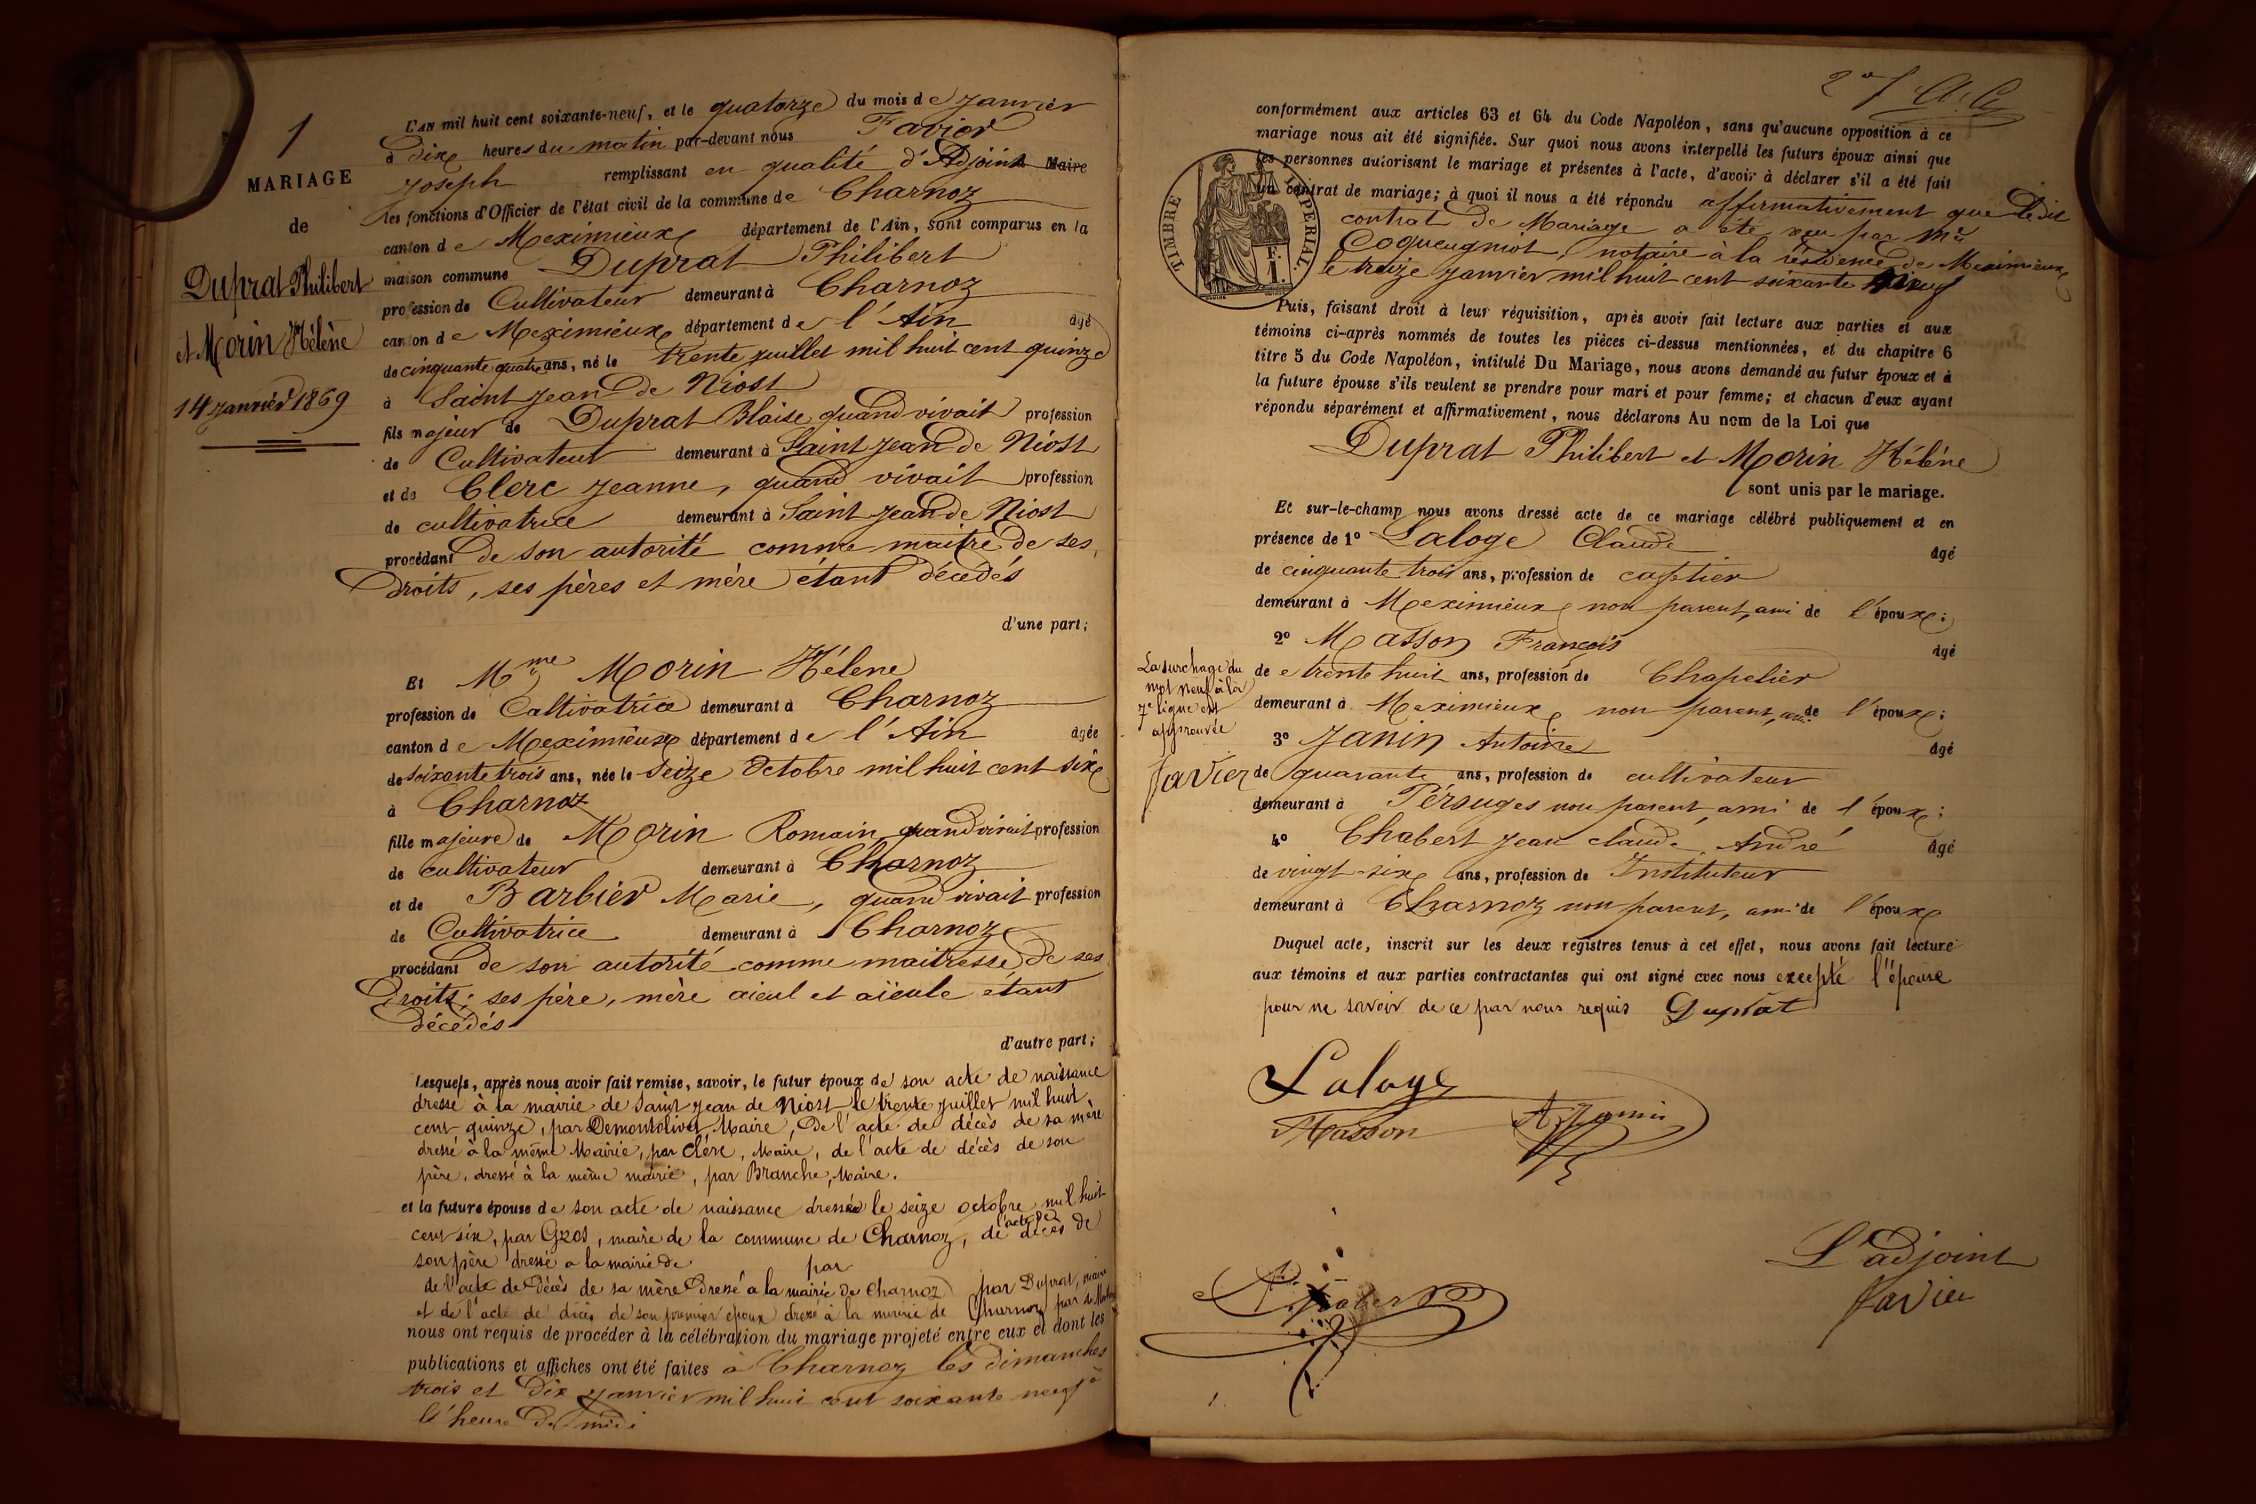 1
MARIAGE
de
Duprat Philibert
et Morin Hélène
14 janvier 1869
L'AN mil huit cent soixante-neuf, et le quatorze du mois de janvier
à dix heures du matin par-devant nous Favier
Joseph remplissant en qualité d'Adjoint Maire
les fonctions d'Officier de l'état civil de la commune de Charnoz
canton de Meximieux département de l'Ain, sont comparus en la
maison commune Duprat Philibert
profession de Cultivateur demeurant à Charnoz
canton de Meximieux département de l'Ain âgé
de cinquante quatre ans, né le trente juillet mil huit cent quinze
à Saint Jean de Niost
fils majeur de Duprat Blaise quand vivait profession
de Cultivateur demeurant à Saint Jean de Niost
et de Clerc Jeanne, quand vivait profession
de cultivatrice demeurant à Saint Jean de Niost
procédant de son autorité comme maitre de ses
droits, ses pères et mère étant décedés
d'une part;
Et Mme Morin Hélene
profession de Cultivatrice demeurant à Charnoz
canton de Meximieux département de l'Ain âgée
de soixante trois ans, née le seize octobre mil huit cent six
à Charnoz
fille majeure de Morin Romain quand vivait profession
de cultivateur demeurant à Charnoz
et de Barbier Marie, quand vivait profession
de Cultivatrice demeurant à Charnoz
procédant de son autorité comme maitresse de ses
Droits; ses père, mère aieul et aïeule étant
décédés
d'autre part;
Lesquels, après nous avoir fait remise, savoir, le futur époux de son acte de naissance
dressé à la mairie de Saint Jean de Niost le trente juillet mil huit
cent quinze, par Demontolivet Maire, de l'acte de décès de sa mère
dressé à la même Mairie, par Clerc, Maire, de l'acte de décès de son
père, dressé à la même mairie, par Branche, Maire.
et la future épouse de son acte de naissance dressé le seize octobre mil huit
cent six, par Gros, maire de la commune de Charnoz, de l'acte de décès de
son père dressé a la mairie de par
de l'acte de décès de sa mère dressé a la mairie de Charnoz par Duprat, maire
et de l'acte de décès de son premier époux dressé à la mairie de Charnoz par
nous ont requis de procéder à la célébration du mariage projeté entre eux et dont les
publications et affiches ont été faites à Charnoz les dimanches
trois et dix janvier mil huit cent soixante neuf à
l'heure de midi
2
conformément aux articles 63 et 64 du Code Napoléon, sans qu'aucune opposition à ce
mariage nous ait été signifiée. Sur quoi nous avons interpellé les futurs époux ainsi que
les personnes autorisant le mariage et présentes à l'acte, d'avoir à déclarer s'il a été fait
un contrat de mariage; à quoi il nous a été répondu affirmativement que ledit
contrat de Mariage a été reçu par Me
Coqueugniot, notaire à la résidence de Meximieux
le treize janvier mil huit cent soixante neuf
TIMBRE IMPERIAL
1 F.
Puis, faisant droit à leur réquisition, après avoir fait lecture aux parties et aux
témoins ci-après nommés de toutes les pièces ci-dessus mentionnées, et du chapitre 6
titre 5 du Code Napoléon, intitulé Du Mariage, nous avons demandé au futur époux et à
la future épouse s'ils veulent se prendre pour mari et pour femme; et chacun d'eux ayant
répondu séparément et affirmativement, nous déclarons Au nom de la Loi que
Duprat Philibert et Morin Hélène
sont unis par le mariage.
Et sur-le-champ nous avons dressé acte de ce mariage célébré publiquement et en
présence de 1º Laloge Claude âgé
de cinquante trois ans, profession de cafetier
demeurant à Meximieux non parent, ami de l'époux;
2º Masson François âgé
de trente huit ans, profession de Chapelier
demeurant à Meximieux non parent, ami de l'époux;
3º Janin Antoine âgé
de quarante ans, profession de cultivateur
demeurant à Pérouges non parent, ami de l'époux;
4º Chabert Jean Claude André âgé
de vingt-six ans, profession de Instituteur
demeurant à Charnoz non parent, ami de l'époux
La surchage du
mot neuf à la
7e ligne est
approuvée
Favier
Duquel acte, inscrit sur les deux registres tenus à cet effet, nous avons fait lecture
aux témoins et aux parties contractantes qui ont signé avec nous excepté l'épouse
pour ne savoir de ce par nous requis Duprat
Laloge
Masson A Janin
Chabert
L'adjoint
Favier